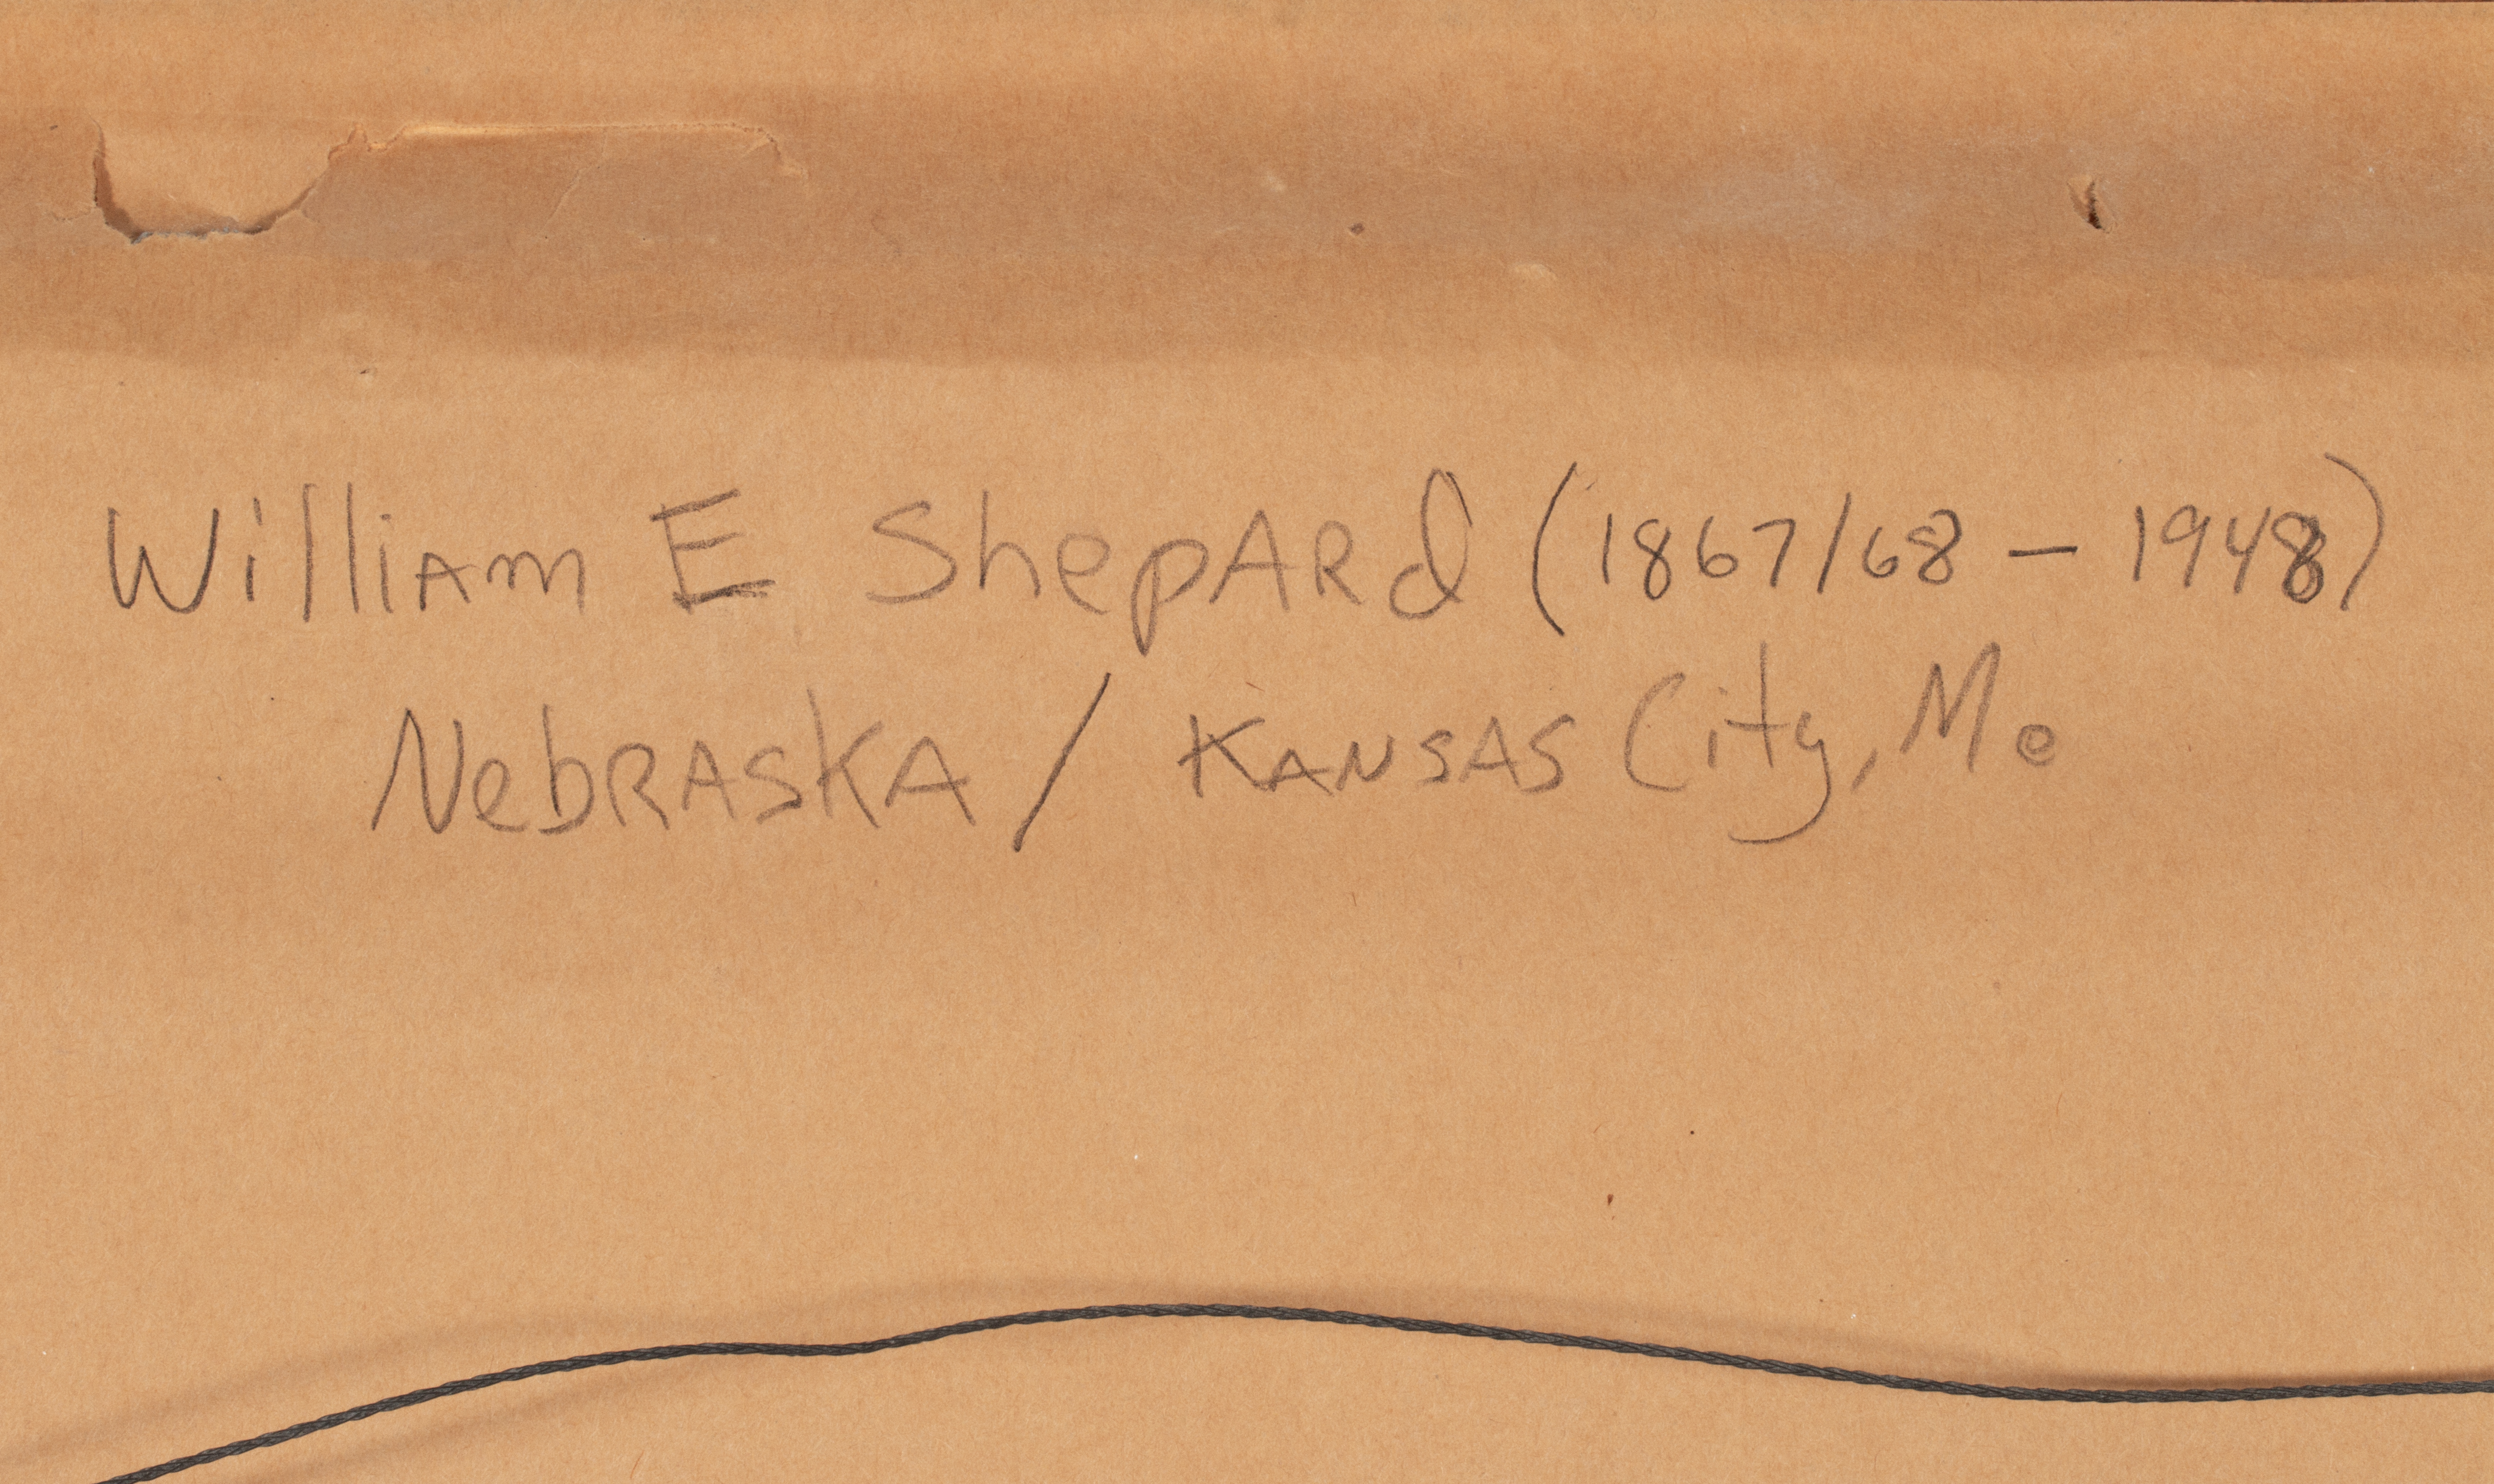 William E Shepard (1867/68 – 1948)
Nebraska / Kansas City, Mo